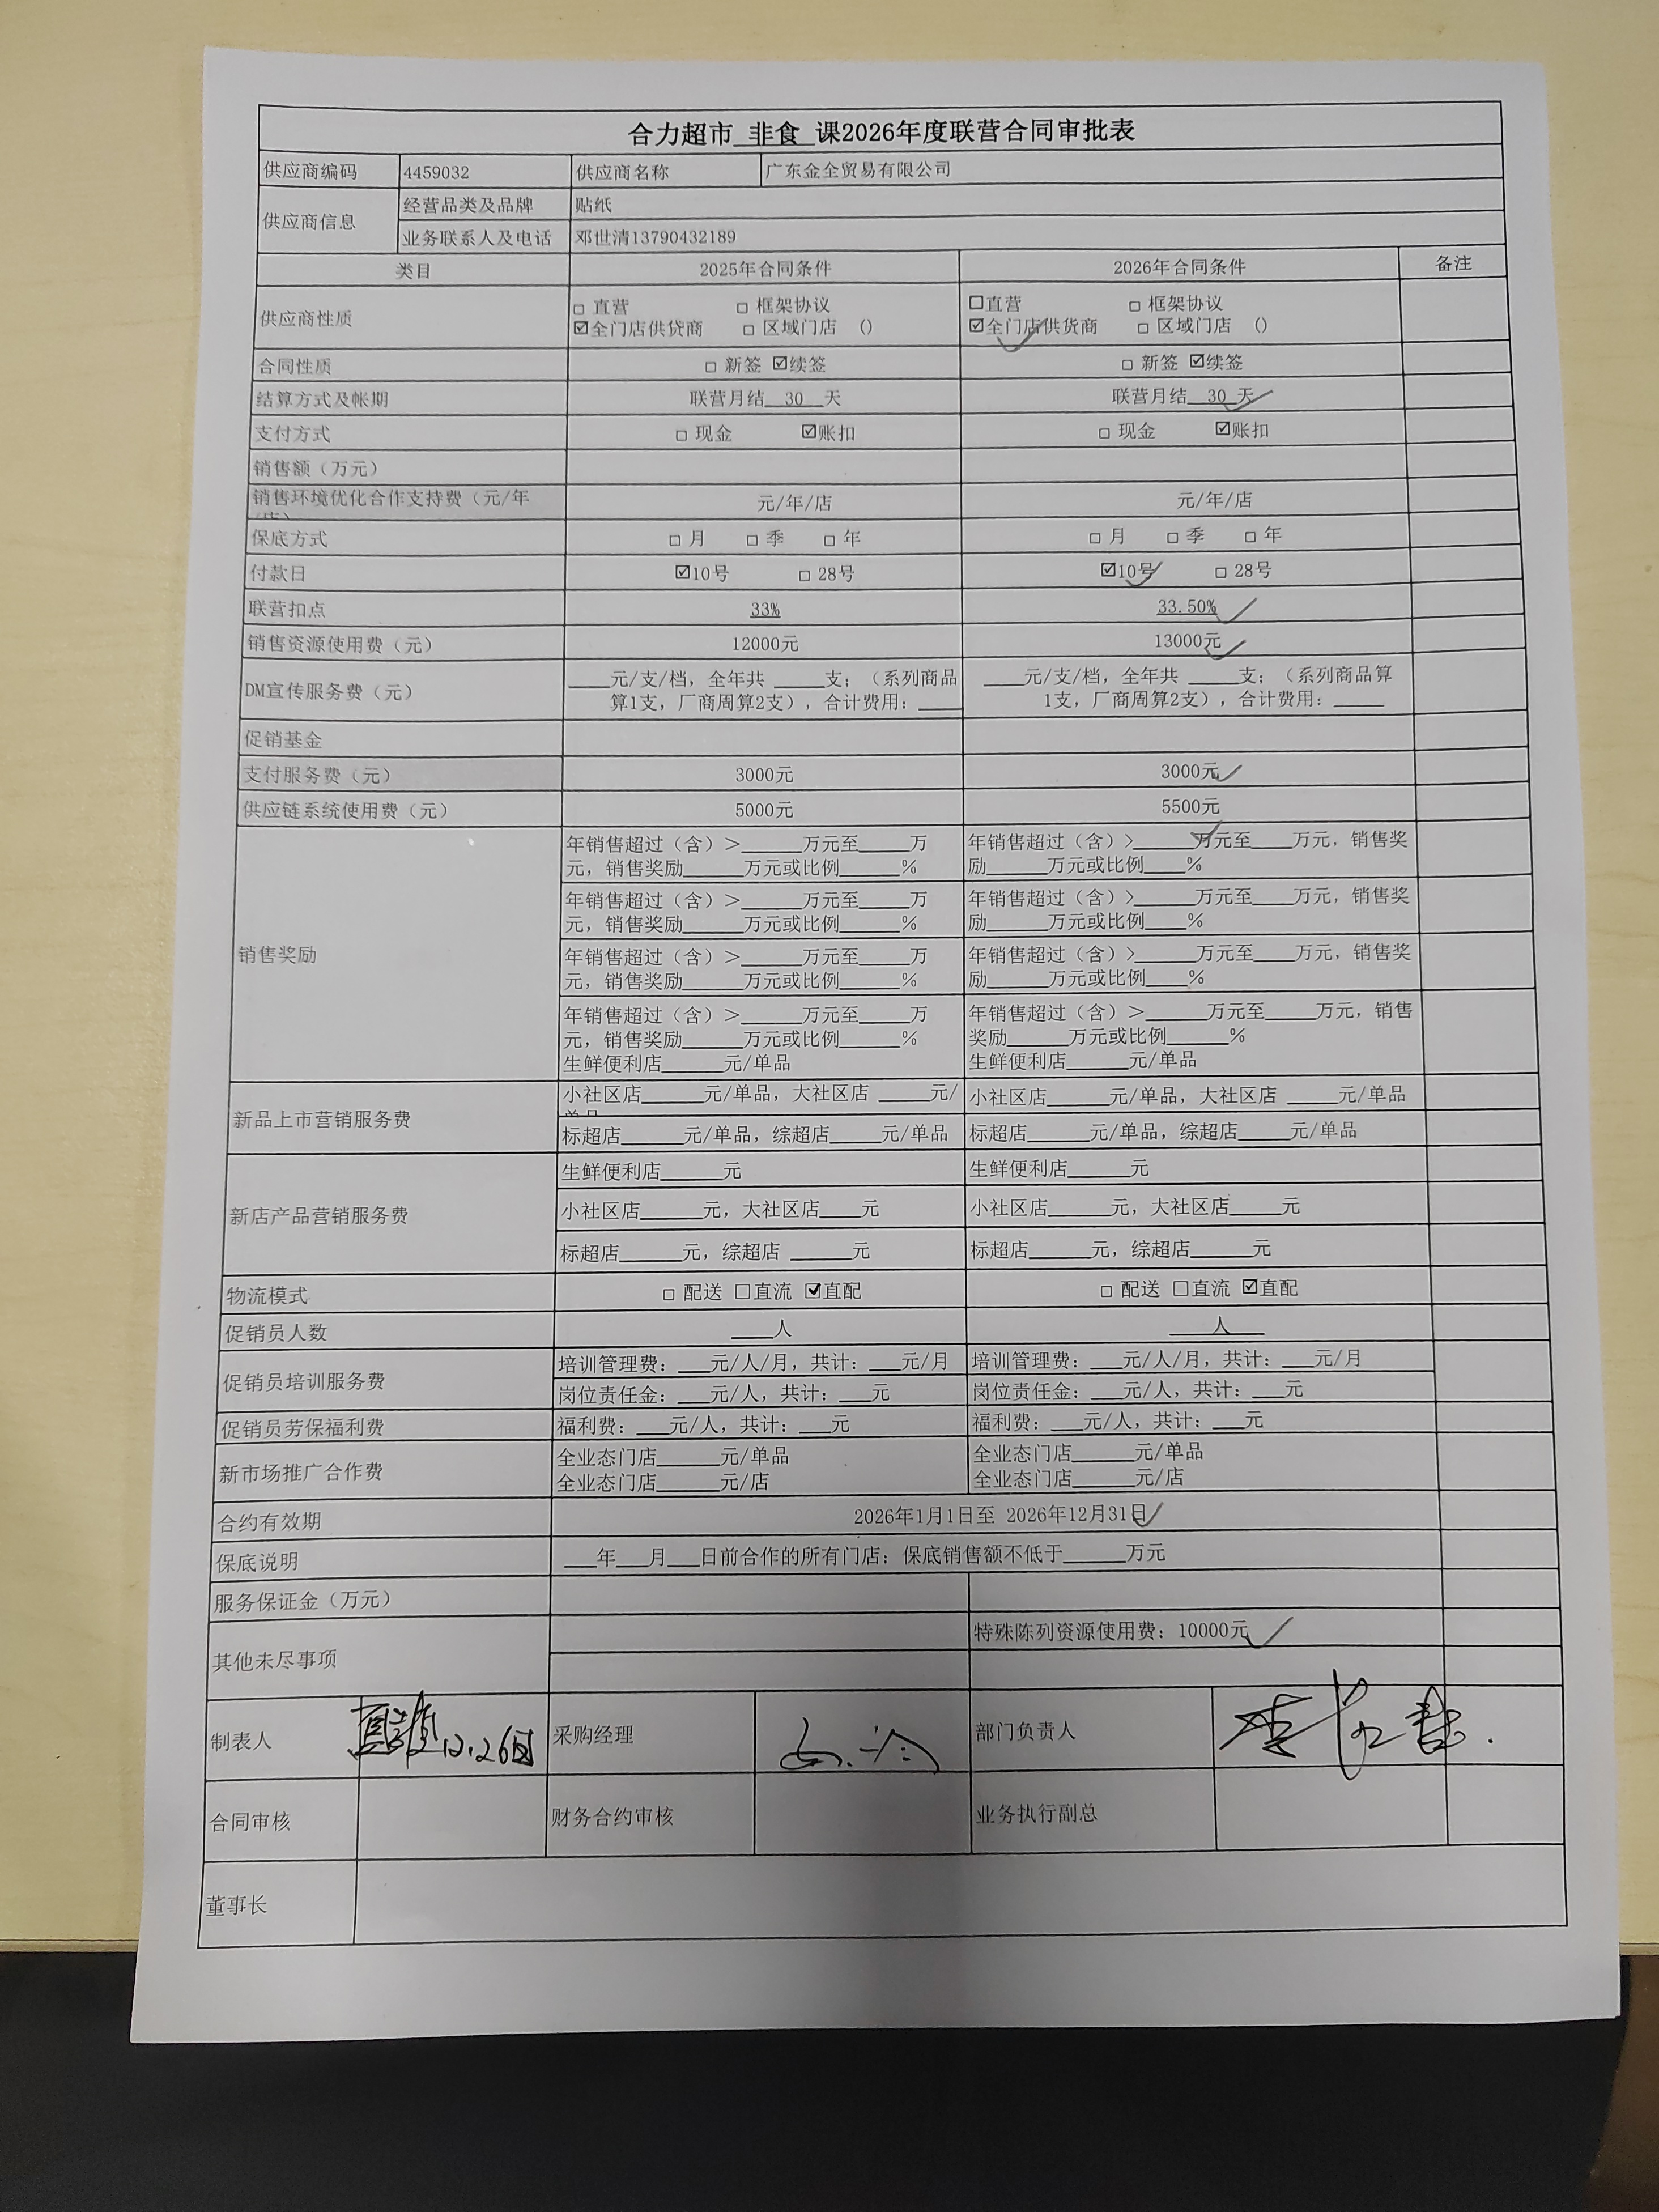 合力超市 非食 课2026年度联营合同审批表
供应商编码 4459032 供应商名称 广东金全贸易有限公司
供应商信息 经营品类及品牌 贴纸
业务联系人及电话 邓世清13790432189
类目 2025年合同条件 2026年合同条件 备注
供应商性质 □ 直营 □ 框架协议 □直营 □ 框架协议
☑全门店供贷商 □ 区域门店 () ☑全门店供货商 □ 区域门店 ()
合同性质 □ 新签 ☑续签 □ 新签 ☑续签
结算方式及帐期 联营月结__30__天 联营月结__30__天
支付方式 □ 现金 ☑账扣 □ 现金 ☑账扣
销售额（万元）
销售环境优化合作支持费（元/年 元/年/店 元/年/店
保底方式 □ 月 □ 季 □ 年 □ 月 □ 季 □ 年
付款日 ☑10号 □ 28号 ☑10号 □ 28号
联营扣点 33% 33.50%
销售资源使用费（元） 12000元 13000元
DM宣传服务费（元） ____元/支/档，全年共 _____支；（系列商品 ____元/支/档，全年共 _____支；（系列商品算
算1支，厂商周算2支），合计费用：____ 1支，厂商周算2支），合计费用：_____
促销基金
支付服务费（元） 3000元 3000元
供应链系统使用费（元） 5000元 5500元
销售奖励 年销售超过（含）＞______万元至_____万 年销售超过（含）>______万元至____万元，销售奖
元，销售奖励______万元或比例______% 励______万元或比例____%
年销售超过（含）＞______万元至_____万 年销售超过（含）>______万元至____万元，销售奖
元，销售奖励______万元或比例______% 励______万元或比例____%
年销售超过（含）＞______万元至_____万 年销售超过（含）>______万元至____万元，销售奖
元，销售奖励______万元或比例______% 励______万元或比例____%
年销售超过（含）＞______万元至_____万 年销售超过（含）＞______万元至_____万元，销售
元，销售奖励______万元或比例______% 奖励______万元或比例______%
生鲜便利店______元/单品 生鲜便利店______元/单品
新品上市营销服务费 小社区店______元/单品，大社区店 _____元/ 小社区店______元/单品，大社区店 _____元/单品
单品
标超店______元/单品，综超店_____元/单品 标超店______元/单品，综超店_____元/单品
新店产品营销服务费 生鲜便利店______元 生鲜便利店______元
小社区店______元，大社区店____元 小社区店______元，大社区店_____元
标超店______元，综超店 ______元 标超店______元，综超店______元
物流模式 □ 配送 □直流 ☑直配 □ 配送 □直流 ☑直配
促销员人数 ____人 ____人___
促销员培训服务费 培训管理费：___元/人/月，共计：___元/月 培训管理费：___元/人/月，共计：___元/月
岗位责任金：___元/人，共计：___元 岗位责任金：___元/人，共计：___元
促销员劳保福利费 福利费：___元/人，共计：___元 福利费：___元/人，共计：___元
新市场推广合作费 全业态门店______元/单品 全业态门店______元/单品
全业态门店______元/店 全业态门店______元/店
合约有效期 2026年1月1日至 2026年12月31日
保底说明 ___年___月___日前合作的所有门店；保底销售额不低于______万元
服务保证金（万元）
其他未尽事项 特殊陈列资源使用费：10000元
制表人 12.26 采购经理 部门负责人
合同审核 财务合约审核 业务执行副总
董事长